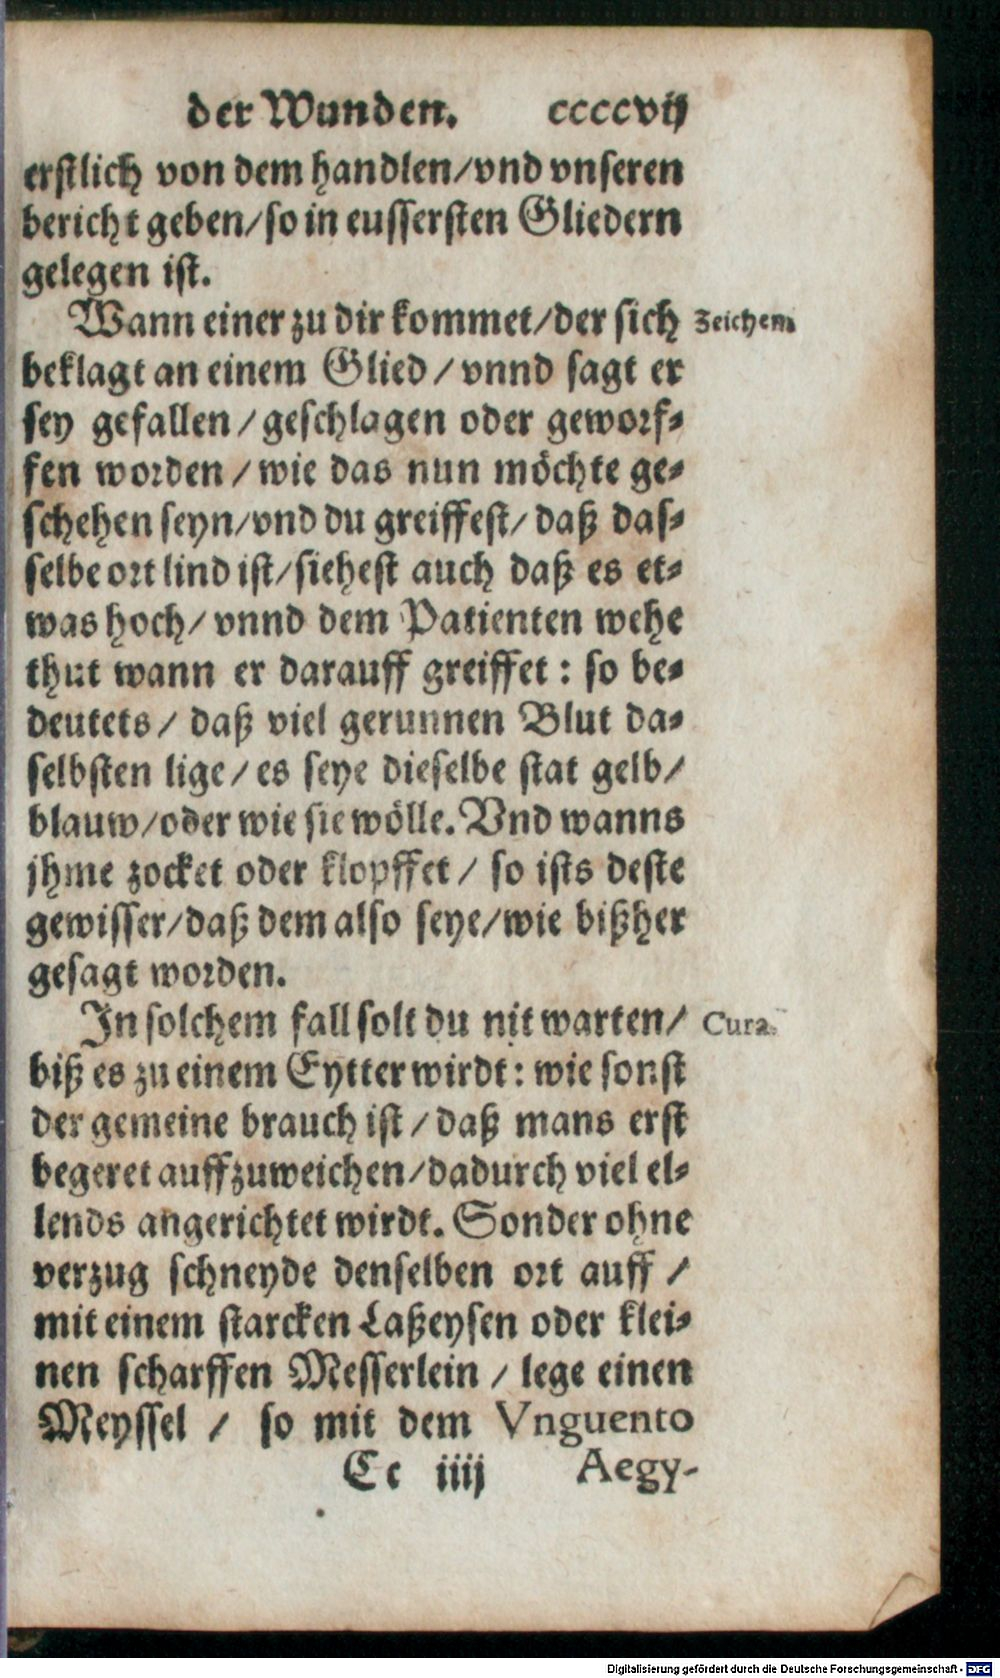 der Wunden. ccccvij
erstlich von dem handlen/vnd vnseren
bericht geben/so in eussersten Gliedern
gelegen ist.
Wann einer zu dir kommet/der sich
Zeichem
beklagt an einem Glied/vnnd sagt er
sey gefallen/geschlagen oder geworf⸗
fen worden/wie das nun möchte ge⸗
schehen seyn/vnd du greiffest/daß das⸗
selbe ort lind ist/siehest auch daß es et⸗
was hoch/vnnd dem Patienten wehe
thut wann er darauff greiffet: so be⸗
deutets/daß viel gerunnen Blut da⸗
selbsten lige/es seye dieselbe stat gelb/
blauw/oder wie sie wölle. Vnd wanns
jhme zocket oder klopffet/so ists deste
gewisser/daß dem also seye/wie bißher
gesagt worden.
In solchem fall solt du nit warten/
Cura.
biß es zu einem Eytter wirdt: wie sonst
der gemeine brauch ist/daß mans erst
begeret auffzuweichen/dadurch viel el⸗
lends angerichtet wirdt. Sonder ohne
verzug schneyde denselben ort auff/
mit einem starcken Laßeysen oder klei⸗
nen scharffen Messerlein/lege einen
Meyssel/so mit dem Vnguento
Ec iiij Aegy-
Digitalisierung gefördert durch die Deutsche Forschungsgemeinschaft - DFG